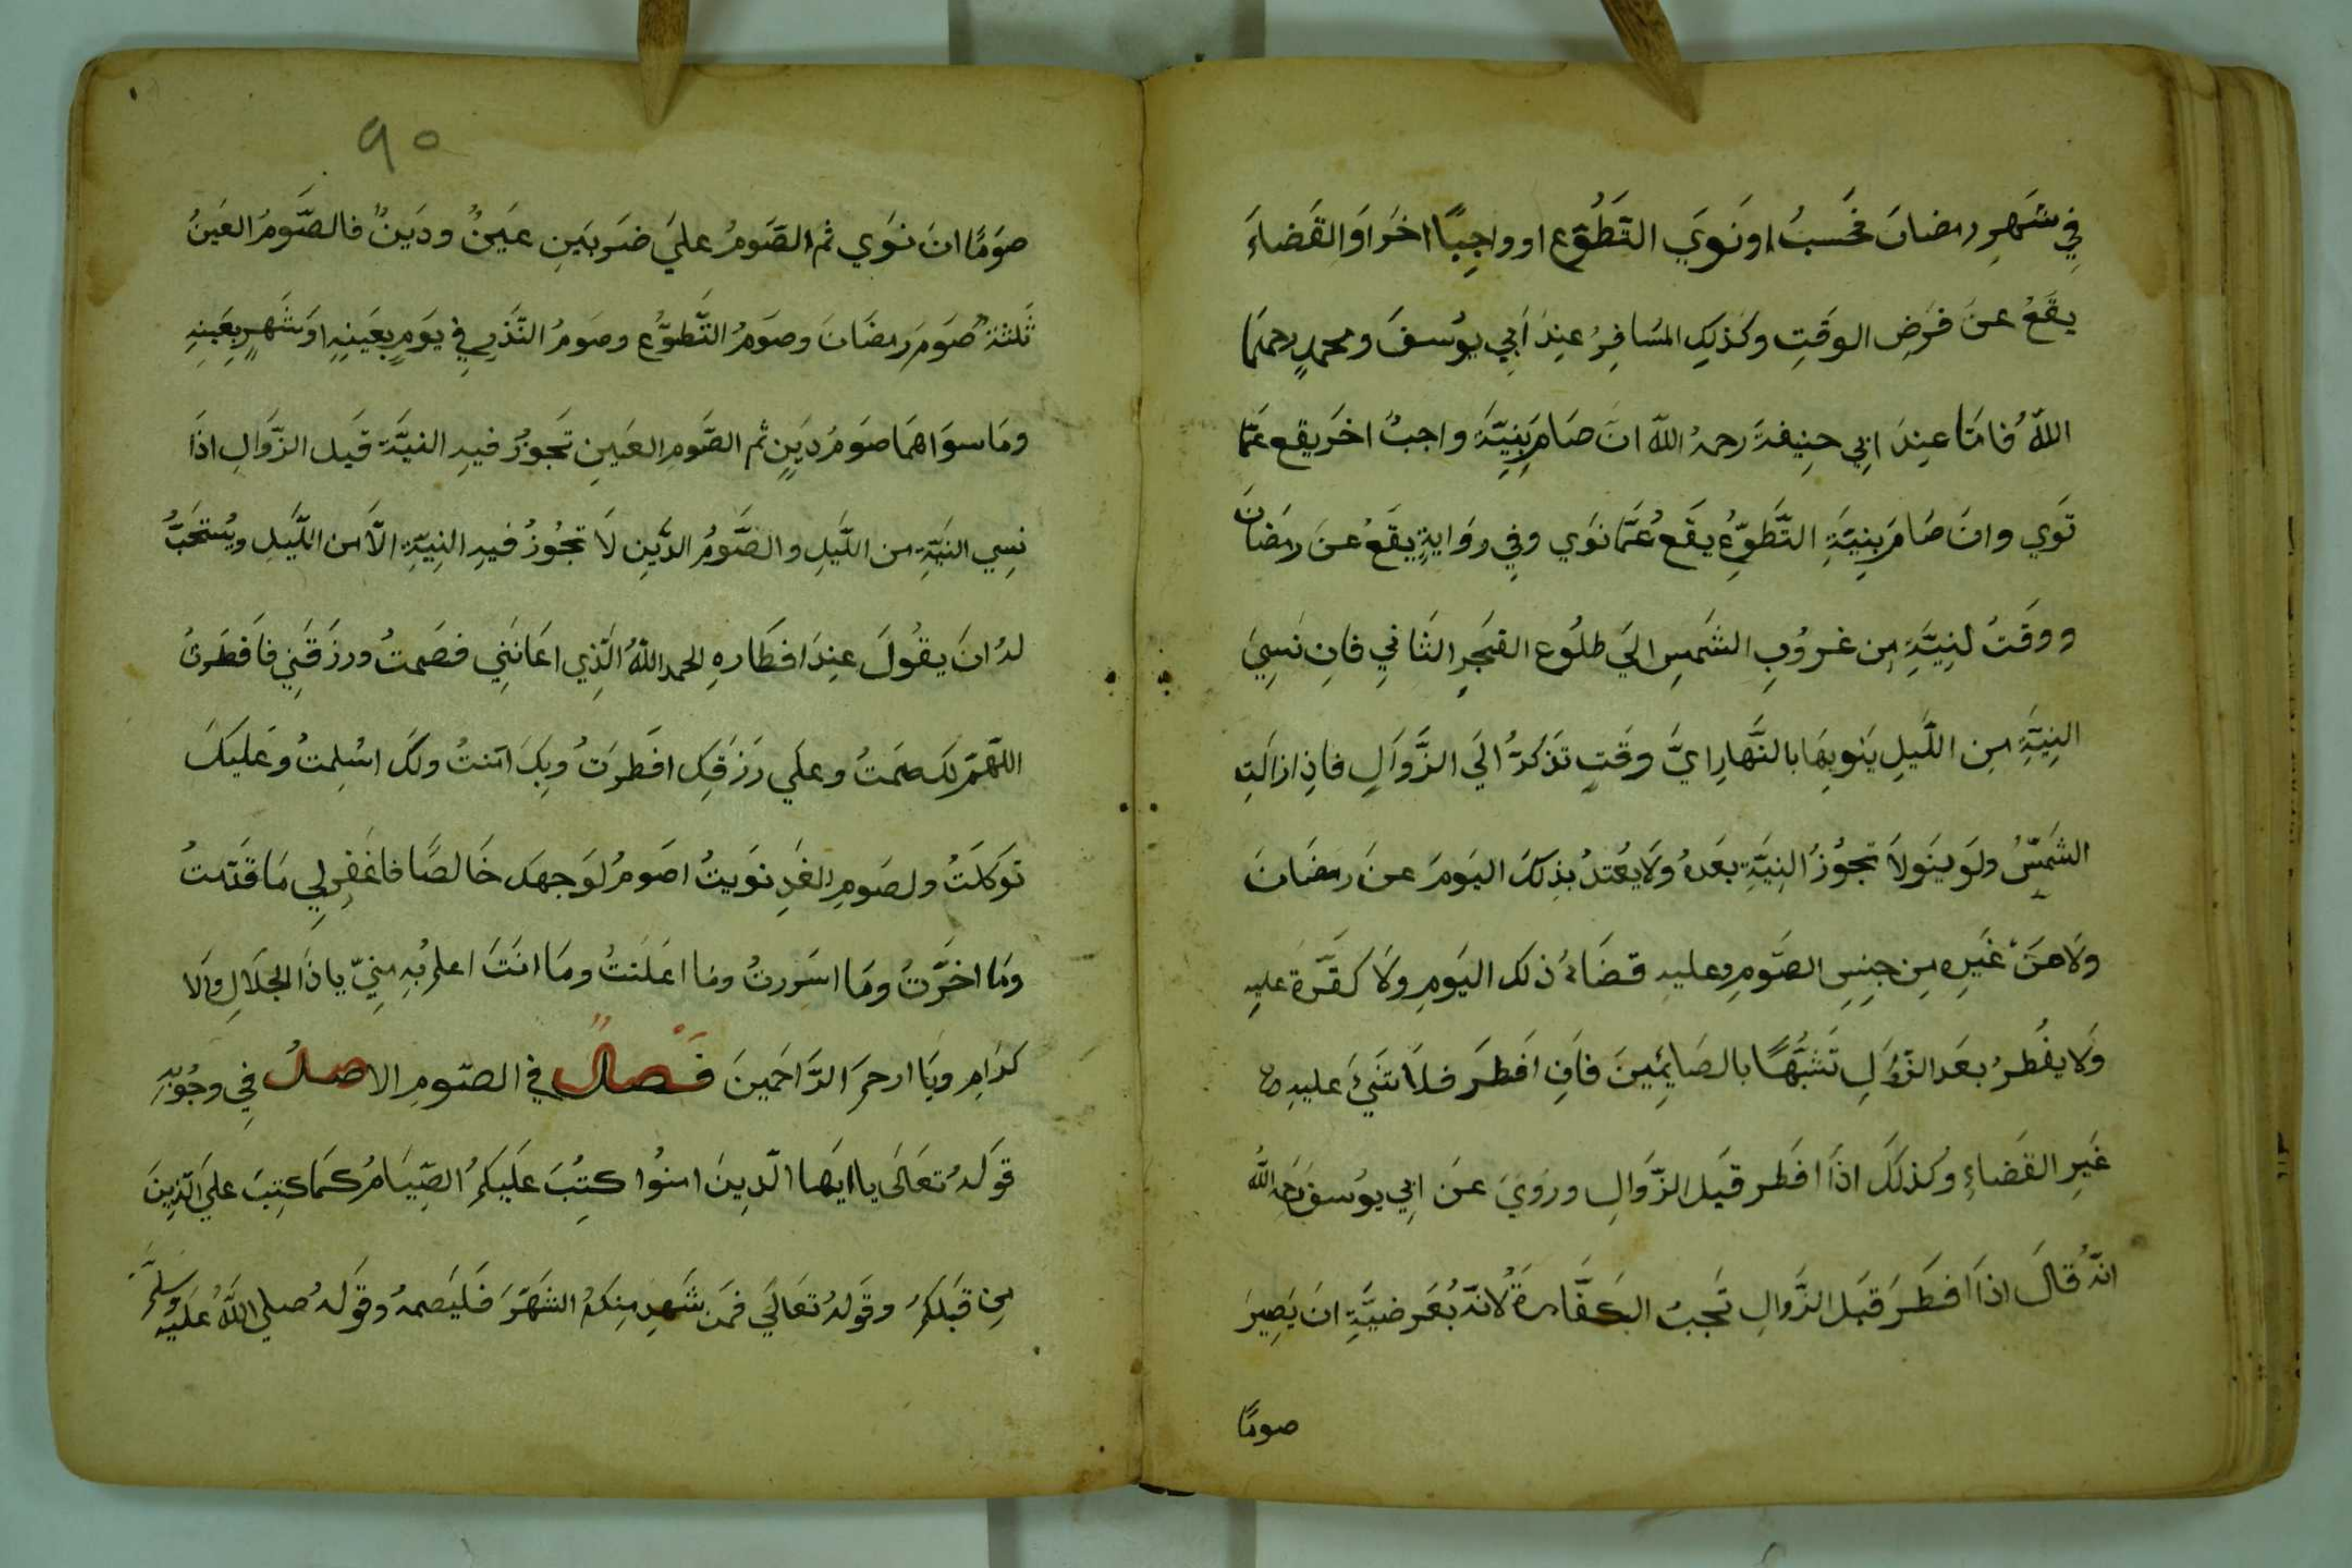 في شَهرِ رمضانَ فحَسبُ اونَوَي التَطُوّع او واجِبًا اخَرَ اوَ القَضاءَ
يقَعُ عنَ فرَضِ الوقَتِ وكَذلِكِ المسَافِرُ عِندَ اَبِي يوُسفَ ومحمدٍ رحمهَمَا
اللهُ فامَّا عِندَ ابِي حنِيفةَ رحمهُ اللهُ انَ صَامَ بِنِيَّةَ واجبُ اخَر يقع عَمَّا
نَوَي وانَ صَامَ بِنِيَّةِ التَّطَوّعِ يقَع عَمَّا نوَي وفِي روَايةٍ يقَعُ عنَ رمَضَانَ
ووقَتُ لنِيَّةِ مِن غرُوُبِ الشَمسِ الَي طلُوُع الفجَرِ الثَانيِ فانِ نَسِيَ
النِيَّةِ مِن اللَّيلِ يَنويِهَا بالنَّهارِ ايَّ وقَتٍ تذَكرَّ الَي الزَّوَالِ فاذِ ازالَتِ
الشَمسُّ ولَو ينَو لاَ تجوُزُ النِيَّةِ بعَدهُ ولَا يعُتدُ بذِلكَ اليَومَ عنَ رمَضَانَ
ولَا عنَ غَيرِه مِن جِنِسِ الصَّومِ وعليهِ قضَاءُ ذلك اليَومِ ولَا كفَّرَة عليهِ
ولَا يفُطرُ بعَد الزَّوَالِ تَشَبُّهًا بالصَايِمِينَ فانِ افَطرَ فلَا شَيَ عليهِ
غَيرِ القضَاءِ وكُذلكَ اذَا افَطر قيَل الزَّوَالِ ورَوُيَ عنَ ابِي يوُسفَ رَحمَهُ اللهُ
انّهُ قالَ اذَا افَطرَ قبَل الزَّوالِ تَجبُ الكَفَّارةُ لانّهُ بعُرَضيَّةِ انَ يَصِيرَ
صومًا
٩٥
صوَمًا انَ نوَي ثم الصَّومُ عليَ ضرَبيَنِ عيَنُ ودَينُ فالصَّومُ العَينُ
ثَلثةُ صوَمَ رمضَانَ وصوَمُ التَّطوّعُ وصوَمُ النَّذرِ فِي يوَمٍ بعَينِهِ اوَ شَهرٍ بعَينِهِ
ومَا سوَاهمَا صوَمُ دَينٍ ثم الصَّومِ العَينِ تجَوزُ فيهِ النيَّةَ قيَل الزَّوَالِ اذَا
نسِي النيَّةِ من اللَّيلِ والصَّومُ الدَّينِ لَا تجُوزُ فيهِ النِيَّةِ الاَّ من اللَّيلِ ويُستحَبُّ
لهُ انَ يقُولَ عِندَ افطَارهِ الحمد اللهُ الَذِي اعَانَنِي فصَمتُ ورزَقَنِي فاَفطَرتُ
اللهَّمَ لك صَمتُ وعلَي رَزَقِك افَطرَتُ وبِكَ امَنتُ ولكَ اسُلِمتُ وعَليكَ
توَكلَتُ ولصَومِ الغَدِ نوَيتُ اصَومُ لوَجهكَ خَالصًا فاغَفرِ لِي مَا قدَّمتُ
ومَا اخَرَّتُ ومَا اسَررتُ ومَا اعَلَنتُ ومَا انتَ اعلمُ بُهِ مِنيّ ياذَا الجلَالِ والَا
كرَامِ ويَا ارحمَ الرَّاحمَينَ فَصْلٌ في الصّومِ الاصلُ فِي وجُوُبِهِ
قوَلهُ تعَالَى يا ايَها الّذِينَ امنوُا كتِبُ عَليَكمُ الصِّيَامُ كمَا كتِبَ علَي الّذِينَ
مِن قبَلكمُ وقوَلهُ تعَالَي فمَن شَهِد مِنكمُ الشَهَّرَ فلَيَصمهُ وقوَلهُ صلي اللهُ عَليَهِ وسَلمَّ